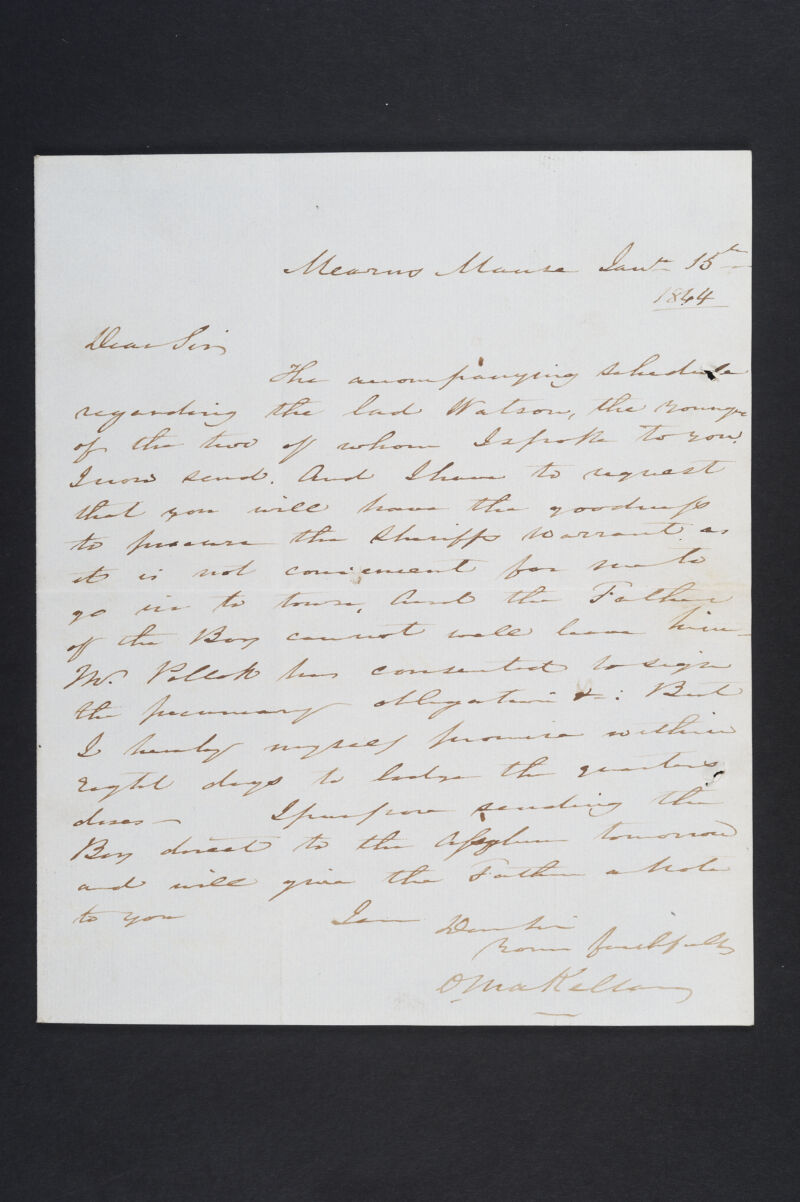 Mearns Manse Jany 15th
1844
Dear Sir
The accompanying schedule
regarding the lad Watson, the younger
of the two of whom I spoke to you.
I now send. And I have to request
that you will have the goodness
to procure the Sheriffs Warrant as
it is not convenient for me to
go in to town, And the Father
of the Boy cannot well leave him—
Mr. Pollok has consented to sign
the pecuniary obligation &c: But
I hereby myself promise within
eight days to lodge the quarters
dues— I purpose sending the
Boy direct to the Asylum tomorrow
and will give the Father a Note
to you I am Dear Sir
Yours faithfully
D. MaKellar